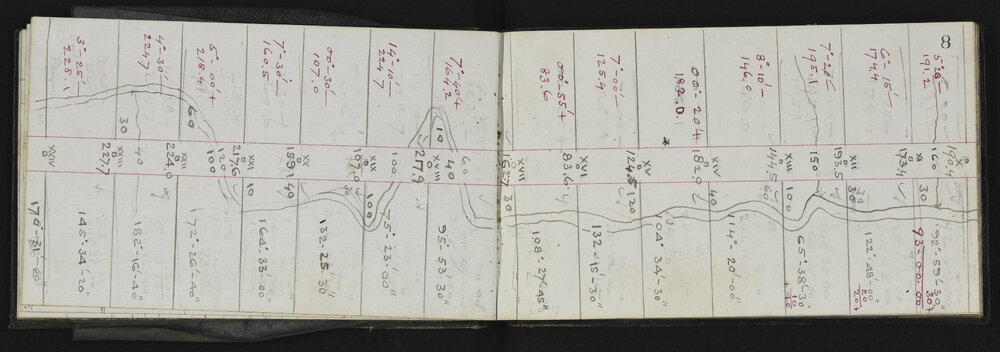 8
X
190.4
5°-20'-
191.2
160
30
92°-59'-30"
30+
93-00.00
XI
173.4
6°-15'-
174.4
XII
193.5
30
122°-48'-00"
20
20+
7°-20'-
195.1
150
65°-38'-30"
10
XIII
147.5
100
8°-10'-
146.0
60
114°-20'-00"
XIV
182.0
40
00°-20+
182.0
104°-34'-30"
XV
124.5
120
7°-00'-
125.4
132-15'-30"
XVI
83.6
00°-55'+
83.6
108°-27'-45"
XVII
162.7
30
7°-40+
164.2
60
40
10
95°-53'-30"
XVIII
217.9
14°-10'-
224.7
100
75°-23'-00"
XIX
107.0
100
00°-30'-
107.0
132-25'-30"
XX
159.1
40
7°-30'-
160.5
164°-33'-00"
XXI
217.6
10
5°-00'+
218.4
120
100
60
172°-26'-40"
XXII
224.0
4°-30'-
224.7
40
182°-16'-40"
XXIII
227.7
30
3°-25'-
228.1
145°-34'-20"
XXIV
178°-31'-00"